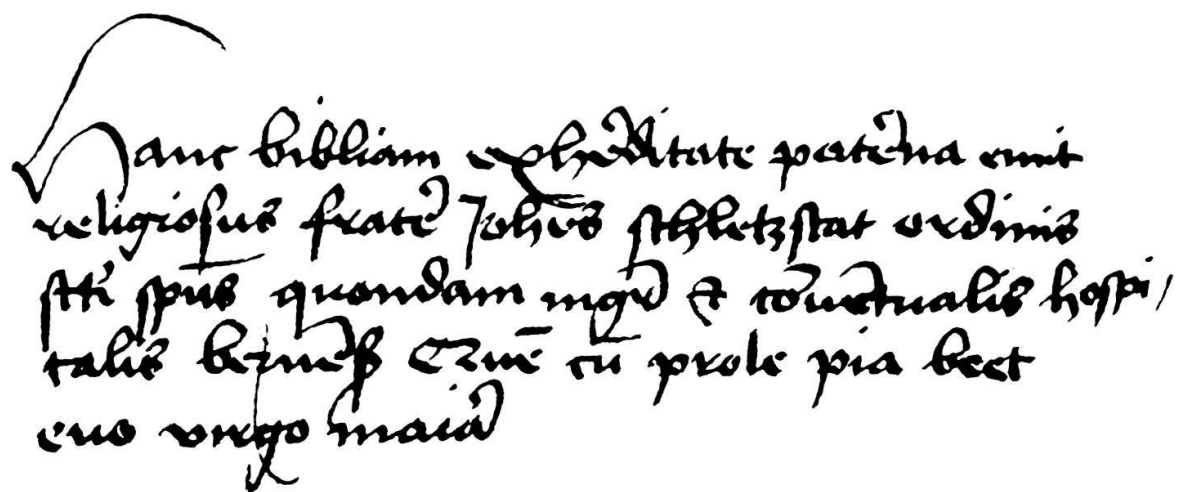 Hanc bibliam exhe'ditate pate'na emit
religiosus frate' Johēs schletzstat ordinis
scti sp̄us quondam mgr̄ & cōuētualis hospi/
talis bernēs Quē cū prole pia beet
euo virgo maia'